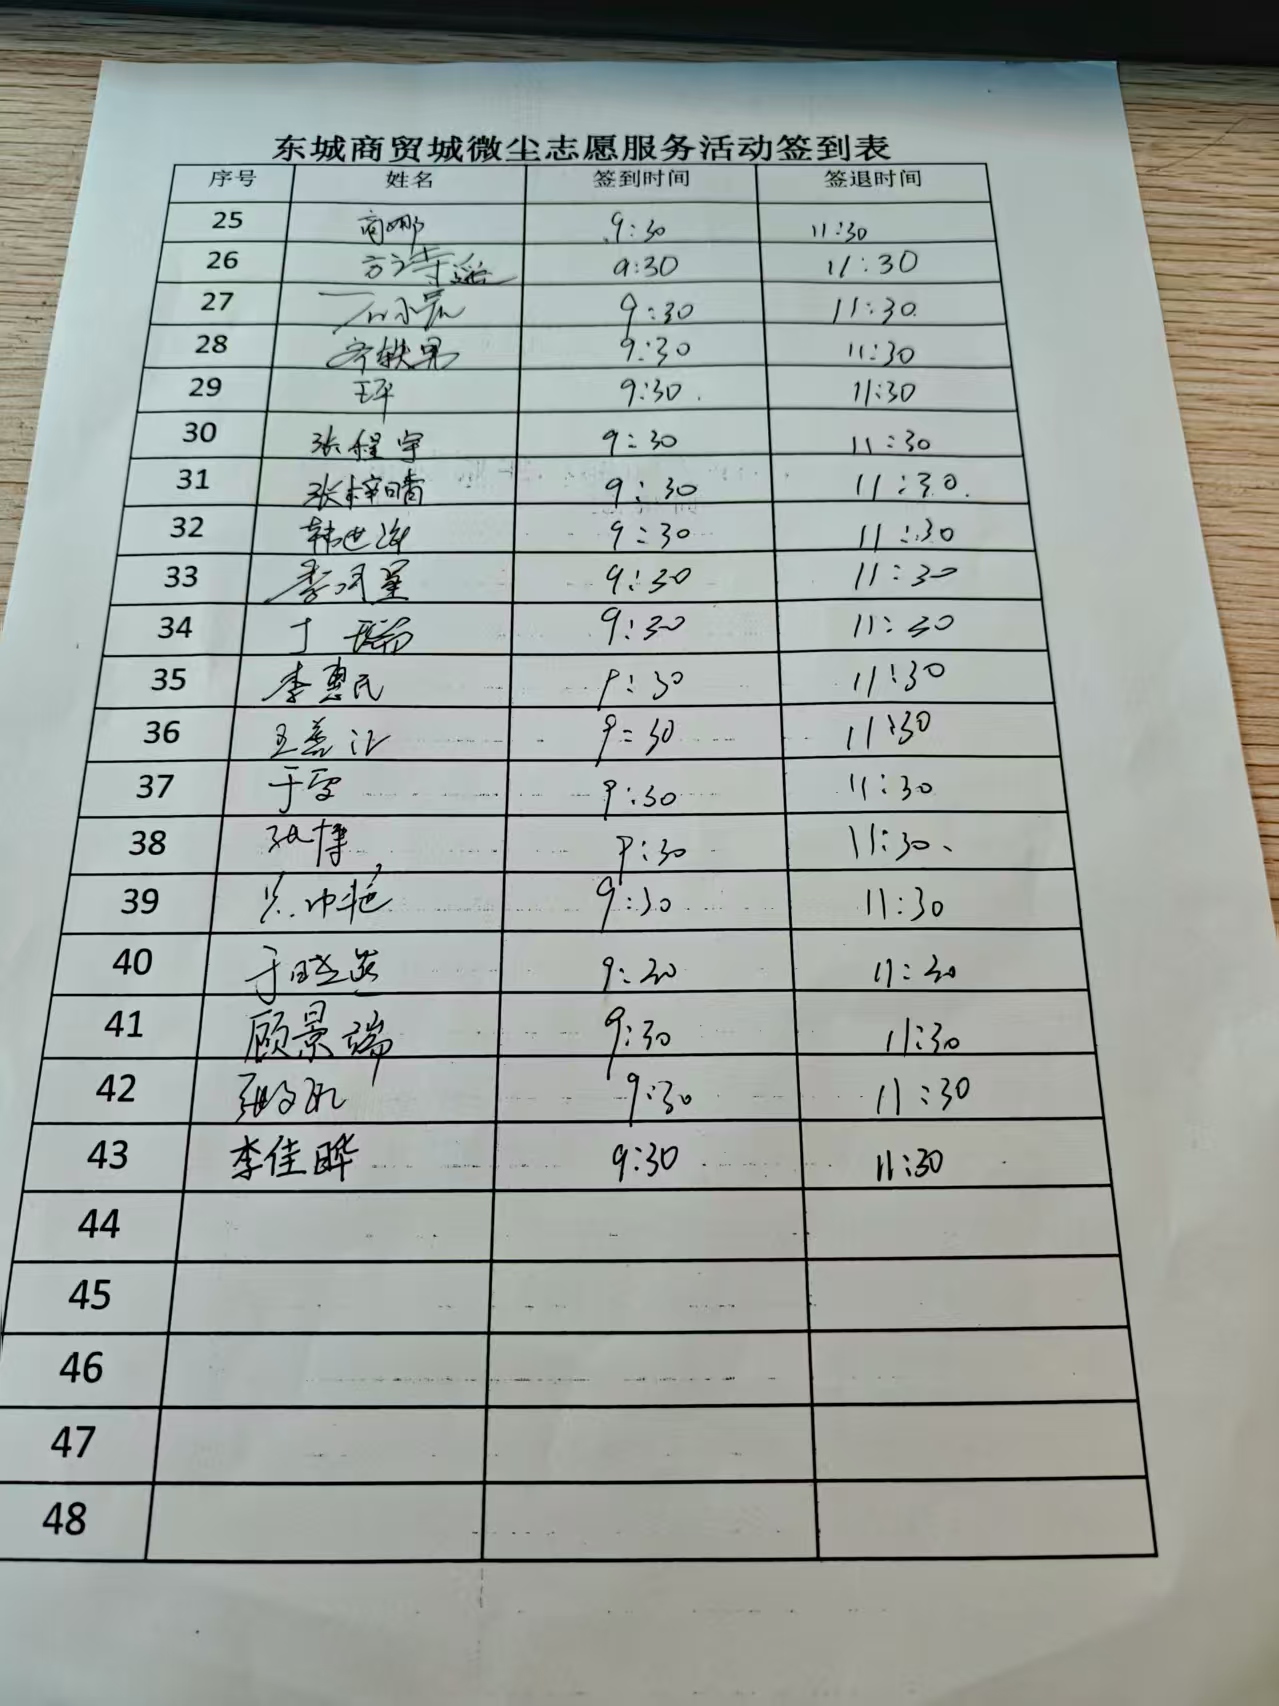 东城商贸城微尘志愿服务活动签到表
序号 姓名 签到时间 签退时间
25 商娜 9:30 11:30
26 方诗涵 9:30 11:30
27 9:30 11:30
28 齐轶男 9:30 11:30
29 王平 9:30 11:30
30 张程宇 9:30 11:30
31 张梓晴 9:30 11:30
32 韩世海 9:30 11:30
33 李河星 9:30 11:30
34 丁瑞 9:30 11:30
35 李惠民 9:30 11:30
36 王善江 9:30 11:30
37 于雯 9:30 11:30
38 张博 9:30 11:30
39 9:30 11:30
40 于晓燕 9:30 11:30
41 顾景端 9:30 11:30
42 9:30 11:30
43 李佳晔 9:30 11:30
44
45
46
47
48